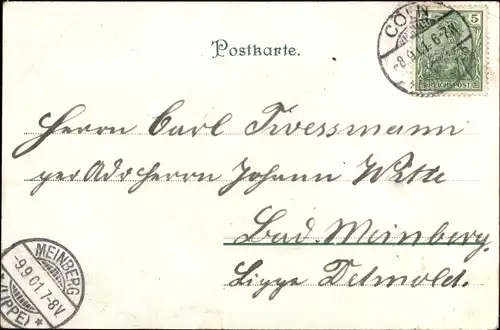 CÖLN
-8.9.01. 6-7N.
5
REICHSPOST
Postkarte.
Herrn Carl Twessmann
per Adr Herrn Johann Witte
Bad Meinberg.
Lippe Detmold.
MEINBERG
-9.9.01. 7-8V.
* (LIPPE) *